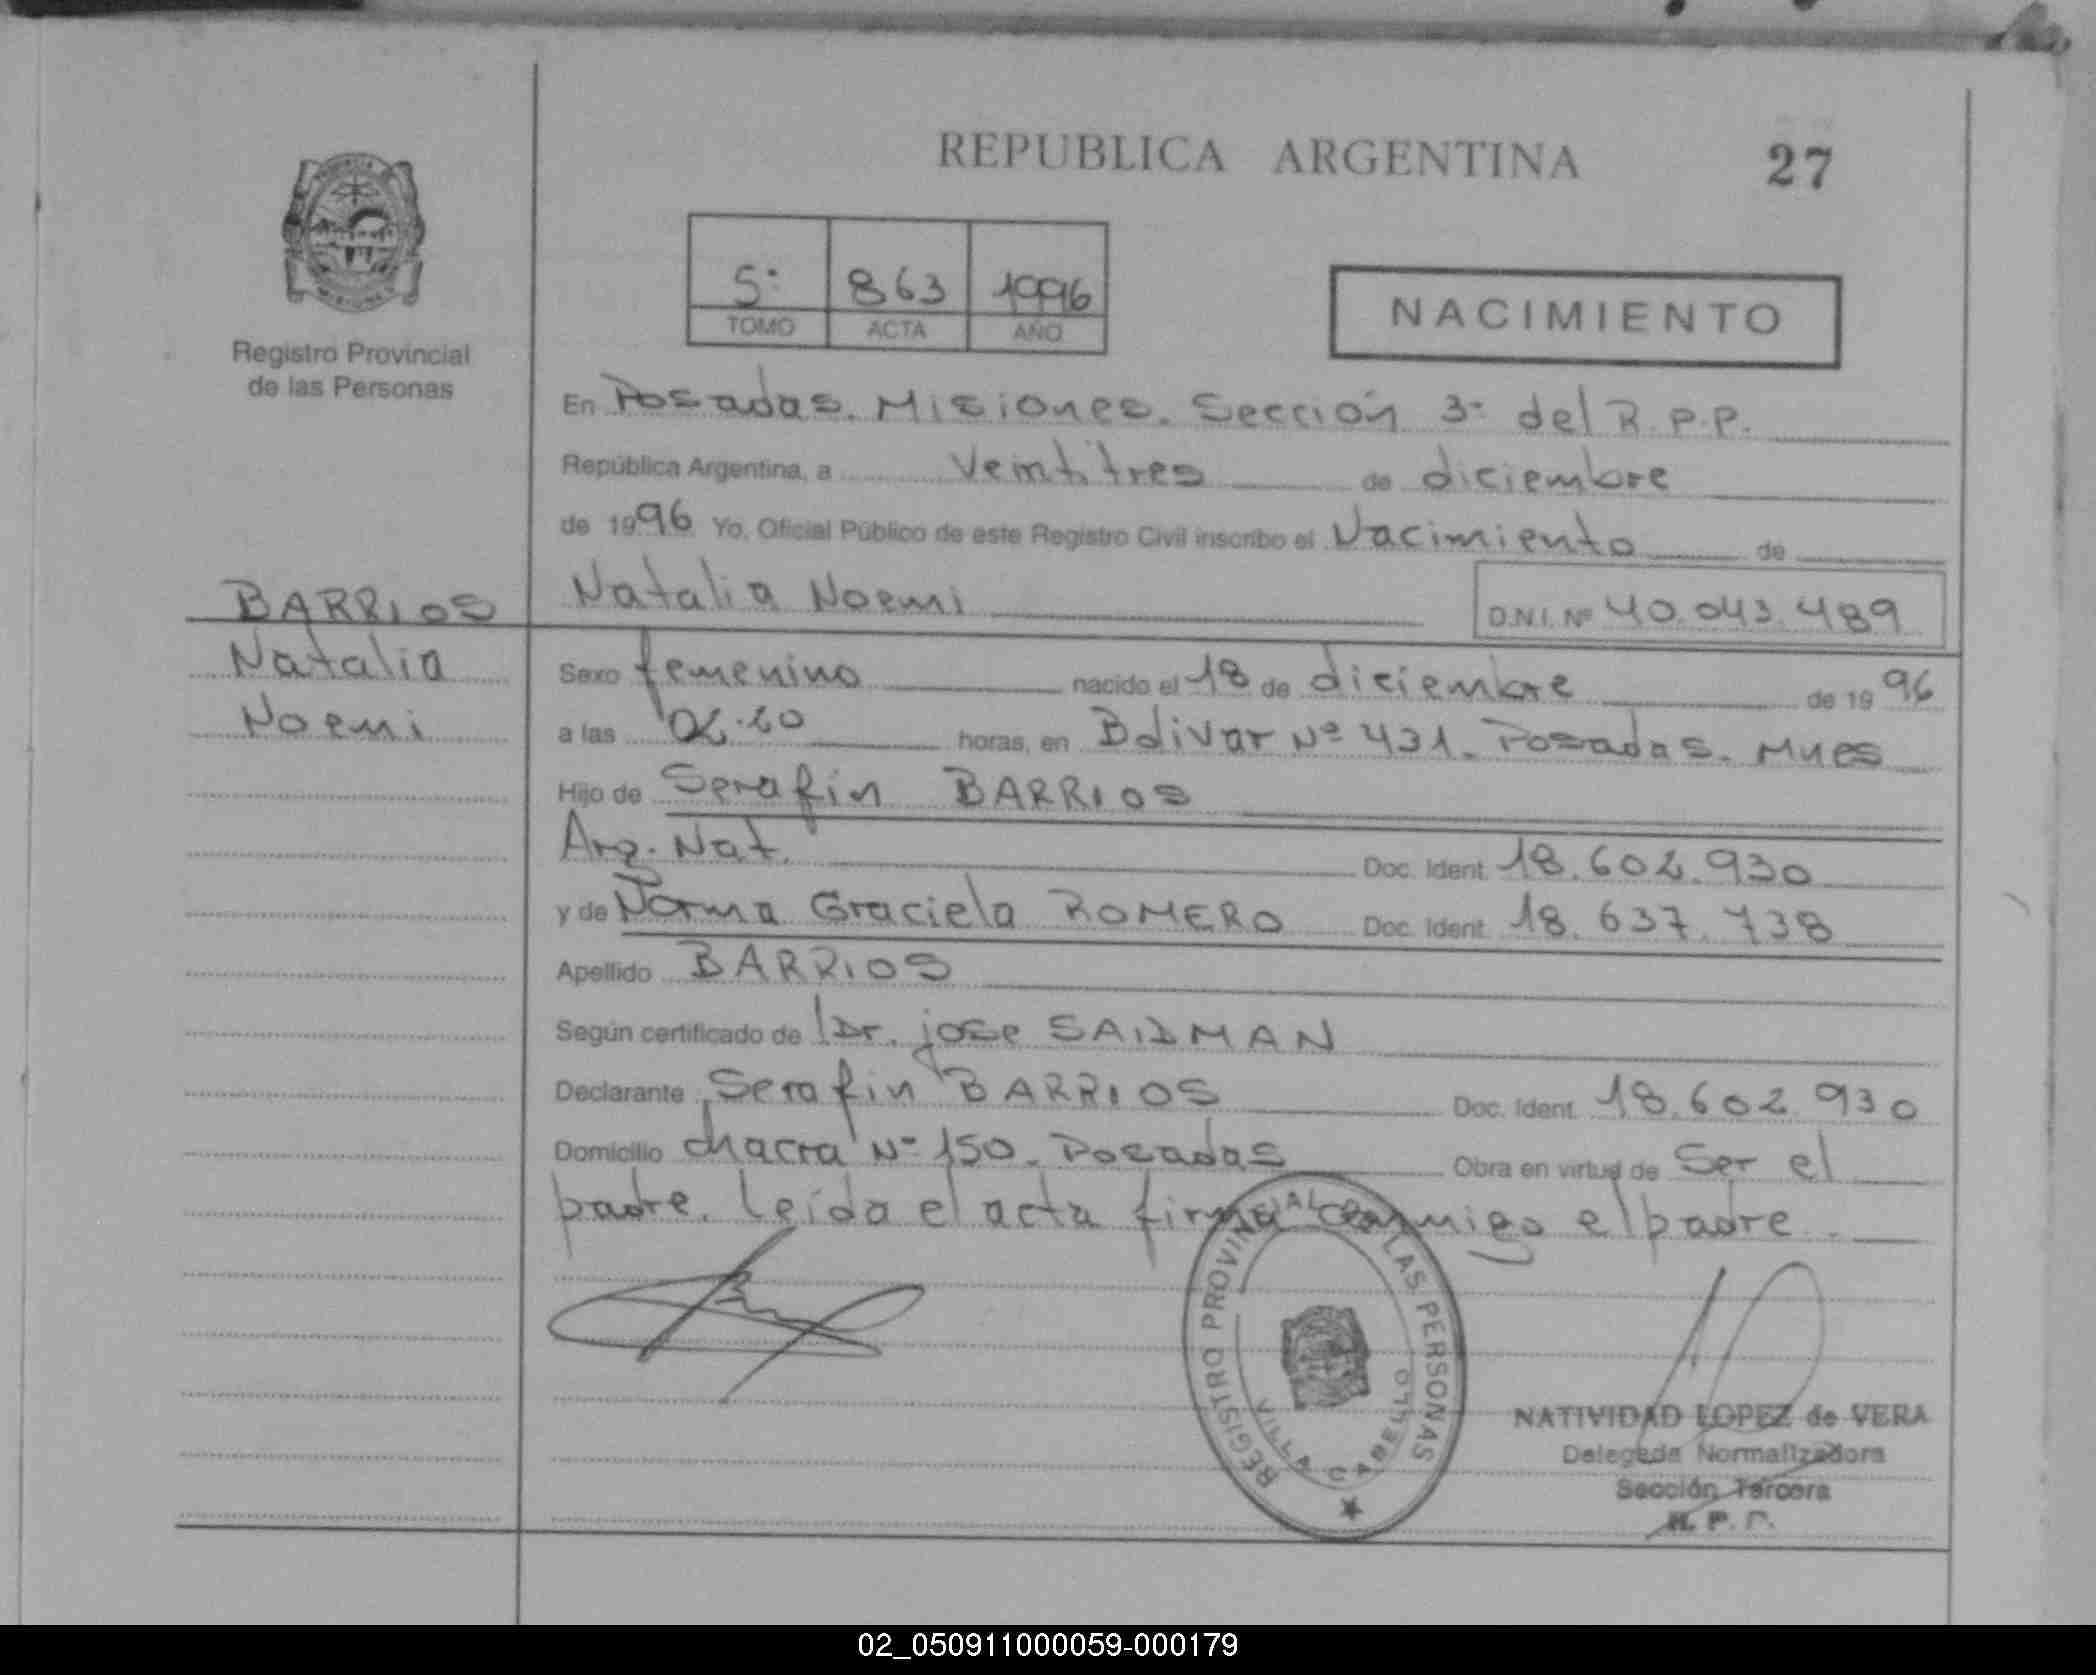 REPUBLICA ARGENTINA 27
5º 863 1996
TOMO ACTA AÑO
NACIMIENTO
Registro Provincial
de las Personas
En Posadas. Misiones. Sección 3º del R.P.P.
República Argentina, a veintitres de diciembre
de 1996 Yo, Oficial Público de este Registro Civil inscribo el Nacimiento de
BARRIOS
Natalia
Noemi
Natalia Noemi D.N.I. Nº 40.043.489
Sexo femenino nacido el 18 de diciembre de 1996
a las horas, en Bolivar Nº 431. Posadas. Mnes
Hijo de Serafin BARRIOS
Arg. Nat. Doc. Ident. 18.602.930
y de Norma Graciela ROMERO Doc. Ident. 18.637.738
Apellido BARRIOS
Según certificado de Dr. jose SAIDMAN
Declarante Serafin BARRIOS Doc. Ident. 18.602.930
Domicilio chacra Nº 150. Posadas Obra en virtud de Ser el
padre. Leída el acta firma conmigo el padre.
REGISTRO PROVINCIAL DE LAS PERSONAS
VILLA CABELLO
NATIVIDAD LOPEZ de VERA
Delegada Normalizadora
Sección Tercera
R. P. P.
02_050911000059-000179